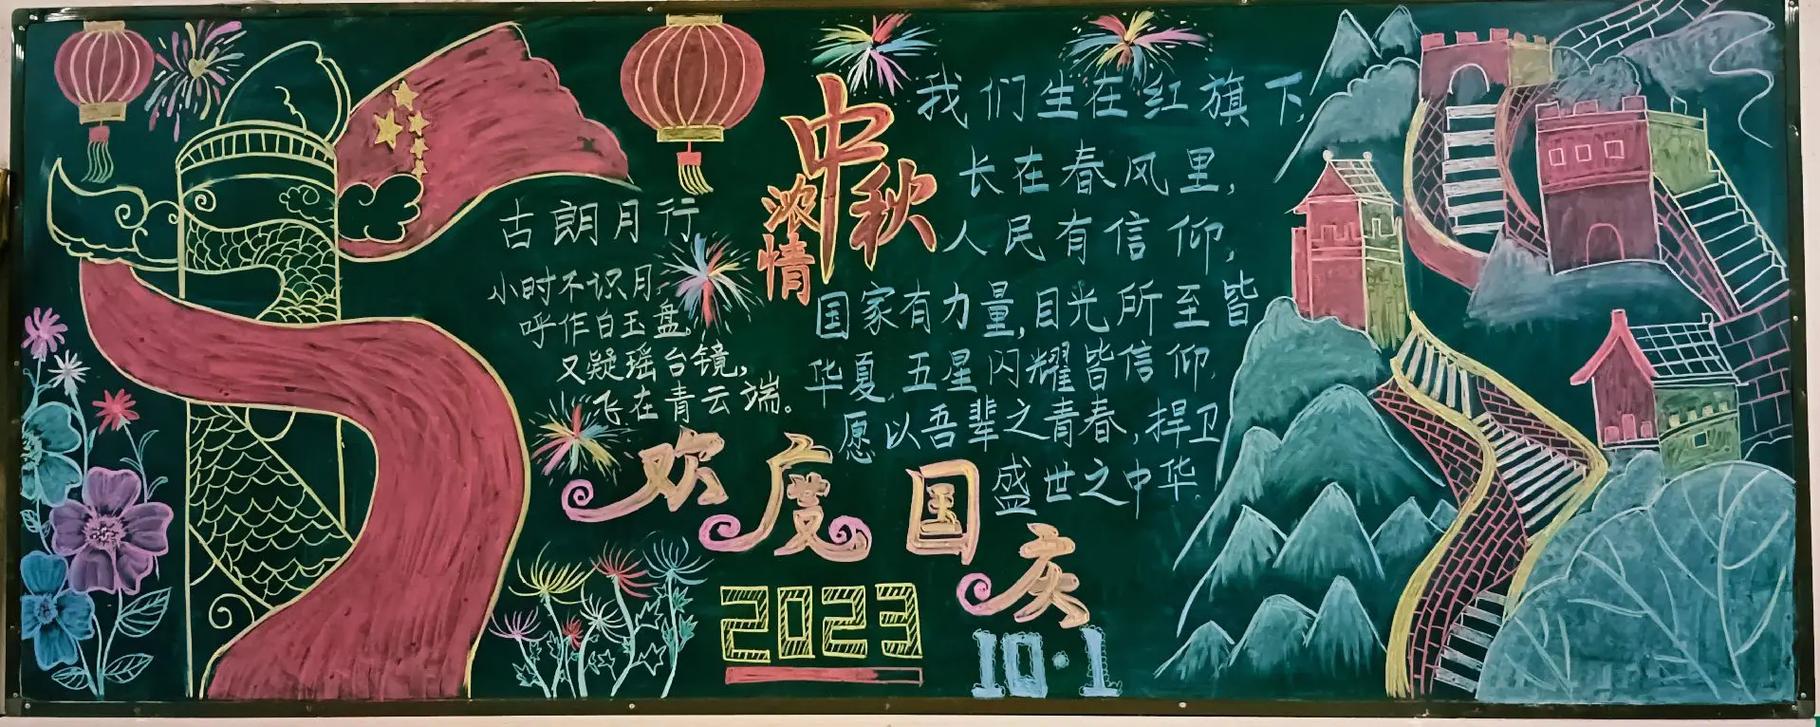 古朗月行
小时不识月,
呼作白玉盘,
又疑瑶台镜,
飞在青云端。
浓情
中秋
我们生在红旗下,
长在春风里,
人民有信仰,
国家有力量,目光所至皆
华夏,五星闪耀皆信仰,
愿以吾辈之青春,捍卫
盛世之中华.
欢度国庆
2023
10·1